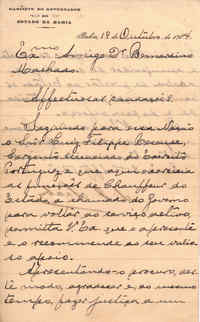 GABINETE DO GOVERNADOR
DO
ESTADO DA BAHIA
Bahia 19 de Outubro de 1914
Exmo Amigo Dr Bernardino
Machado.
Affectuosas saudações.
Seguindo para essa Nação
o Snr Luiz Filippe
Sargento do Exercito
Portuguez e que aqui exercia
as funcções de Chauffeur do
Estado, e chamado do Governo
para voltar ao serviço activo,
permitta V. Exa que o apresente
e o recommende ao seu valio
so apoio.
Apresentando-o procuro, des-
te modo, agradecer e, ao mesmo
tempo, fazer justiça a um